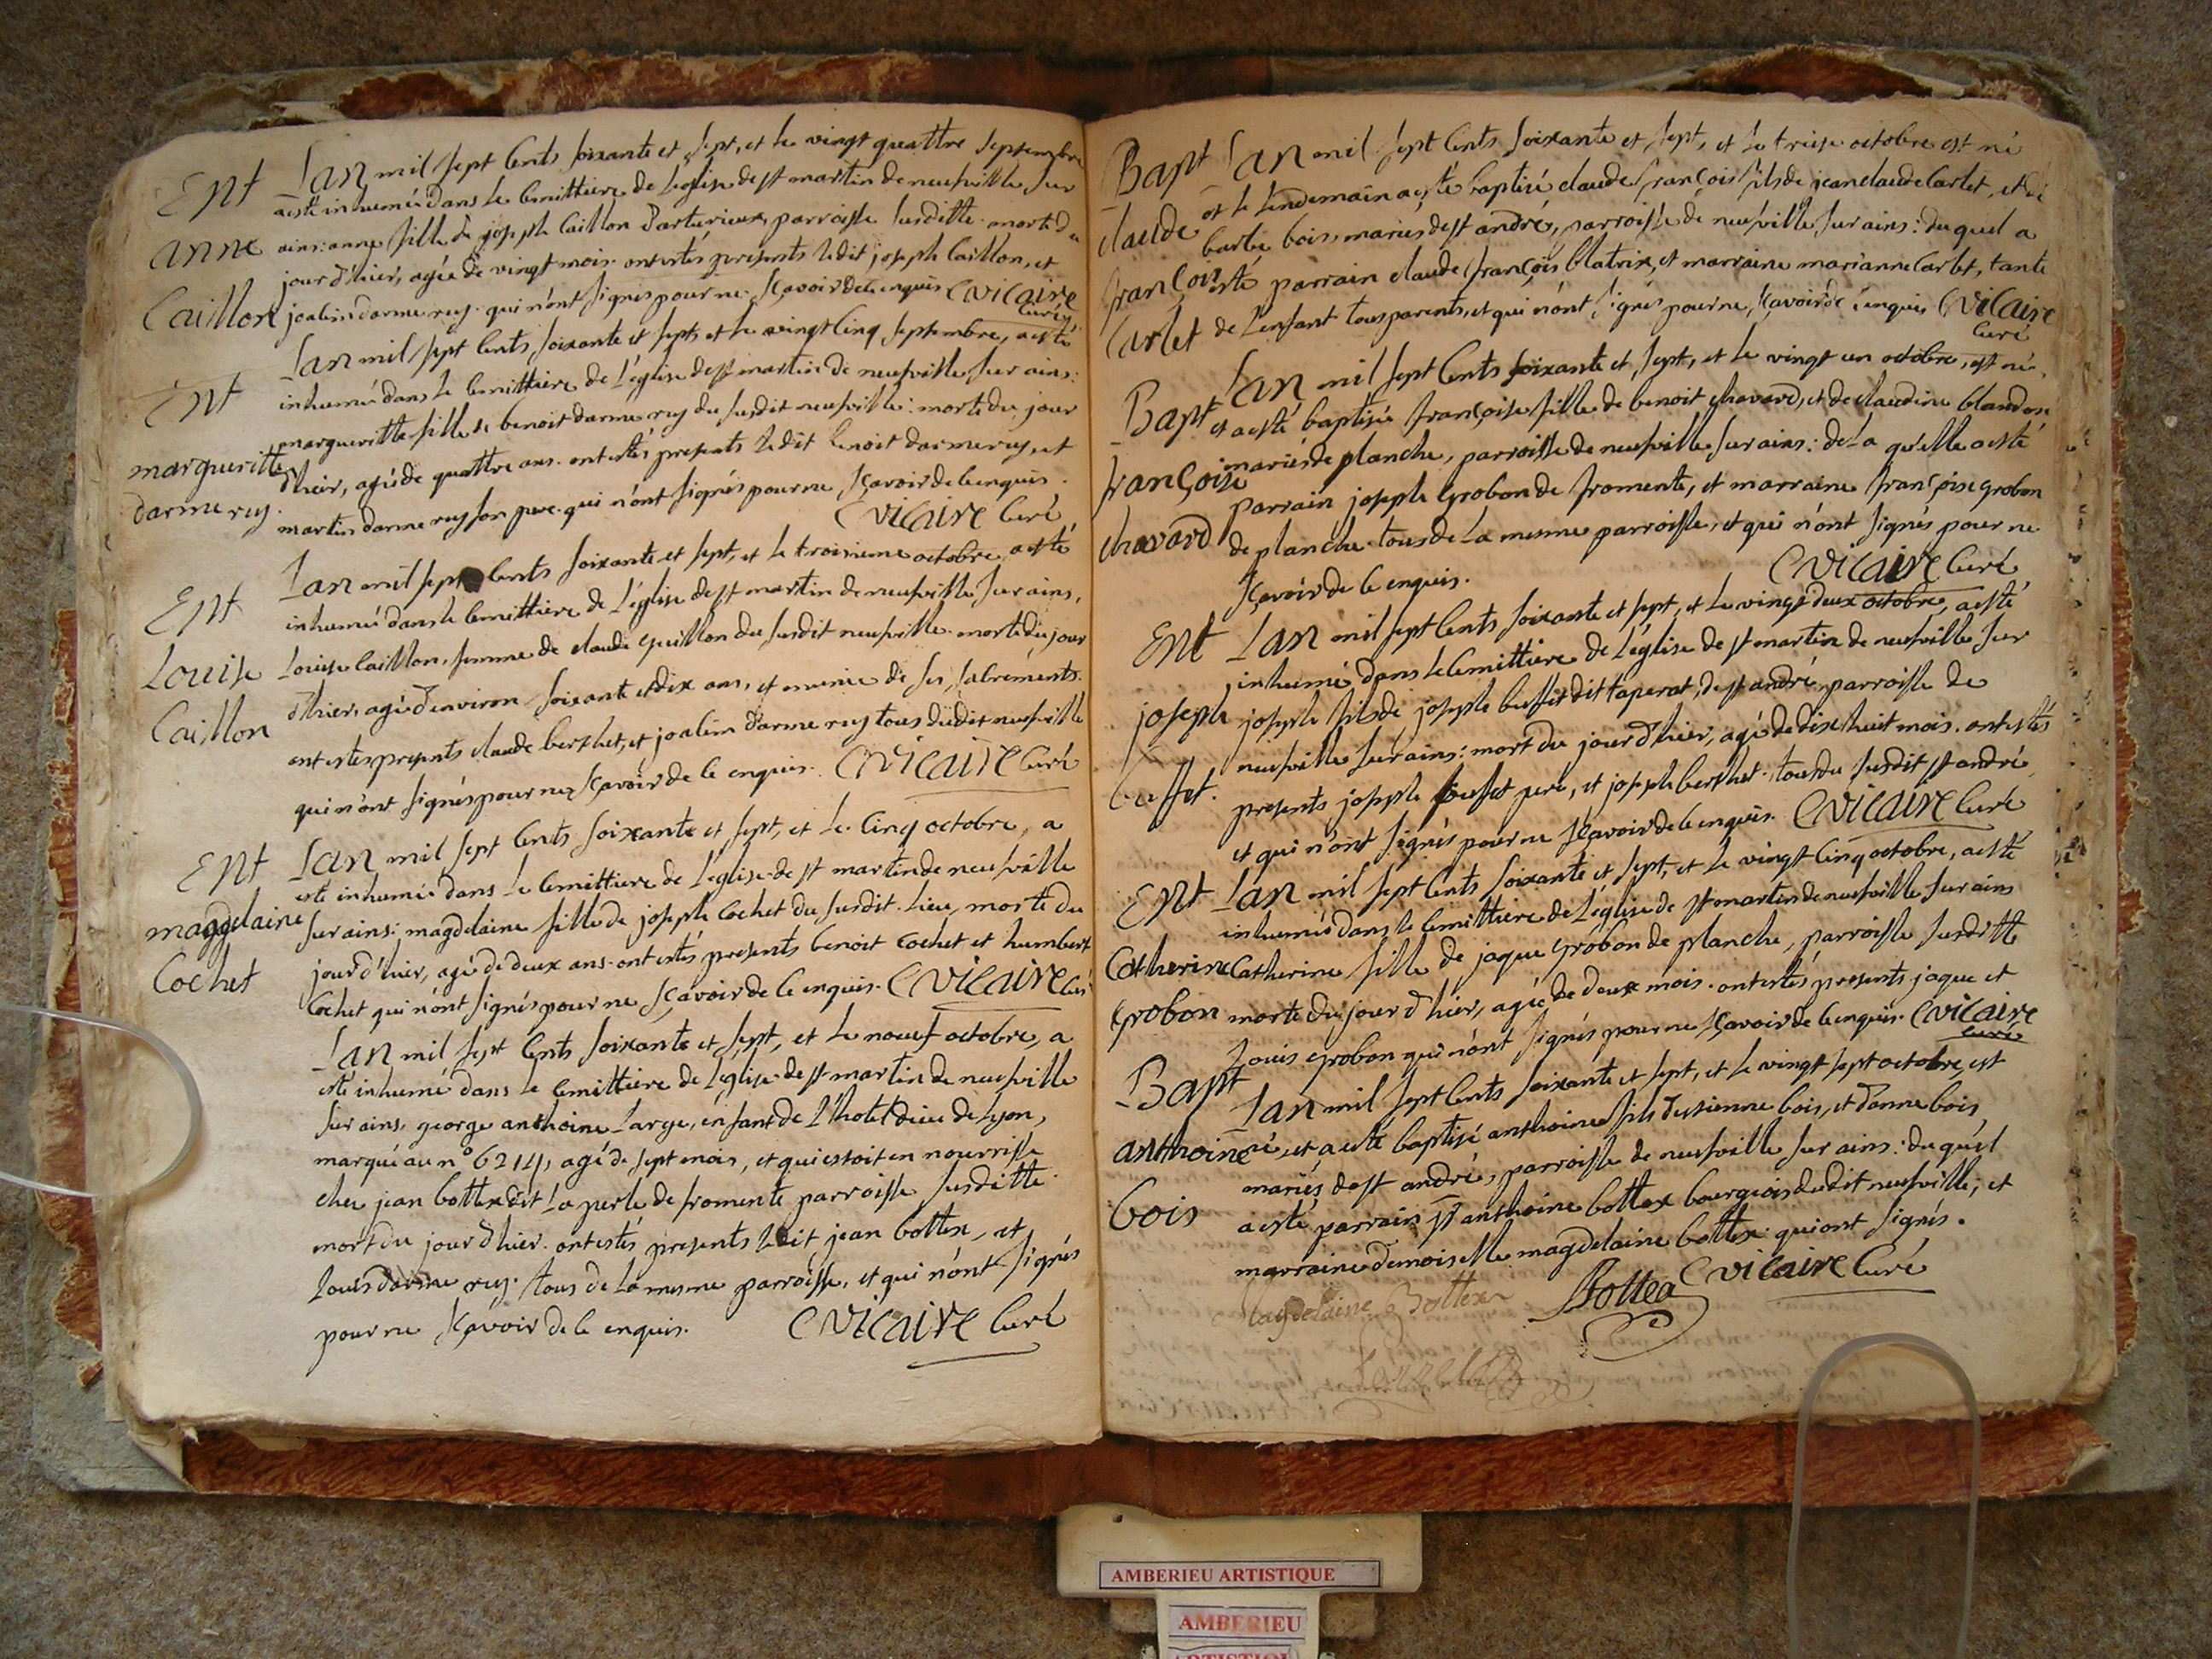 Ent
anne
Caillon
Lan mil sept cents soixante et sept, et le vingt quattre septembre
aesté inhumée dans le cemittiere de l'eglise de st martin de neufville sur
ains: anne fille de joseph Caillon d'arturieux, parroisse susditte. morte du
jour d'hier, agée de vingt mois. ont estés presents ledit joseph Caillon, et
joalin darmerey. qui n'ont signés pour ne sçavoir de ce enquis CVICAIRE
Curé
Ent
margueritte
darmerey.
Lan mil sept cents soixante et sept, et le vingt cinq septembre, a esté
inhumée dans le cemittiere de l'église de st martin de neufville sur ains:
margueritte fille de benoit darmerey du susdit neufville. morte du jour
d'hier, agée de quattre ans. ont estés presents ledit benoit darmerey, et
martin darmerey son pere. qui n'ont signés pour ne sçavoir de ce enquis.
CVICAIRE Curé
Ent
Louise
Caillon
Lan mil sept cents soixante et sept, et le troisieme octobre, a esté
inhumée dans le cemittiere de l'église de st martin de neufville sur ains,
Louise Caillon, femme de claude guillon du susdit neufville. morte du jour
d'hier, agée d'environ soixante et dix ans, et munie de ses sacréments.
ont estés presents claude berthet, et joalin darmerey tous dudit neufville
qui n'ont signés pour ne sçavoir de ce enquis. CVICAIRE Curé
Ent
magdelaine
Cochet
Lan mil sept cents soixante et sept, et le cinq octobre, a
esté inhumée dans le cemittiere de l'église de st martin de neufville
sur ains: magdelaine fille de joseph Cochet du susdit lieu, morte du
jour d'hier, agée de deux ans. ont estés presents benoit Cochet et humbert
Cochet qui n'ont signés pour ne sçavoir de ce enquis. CVICAIRE Curé
Lan mil sept cents soixante et sept, et le noeuf octobre, a
esté inhumé dans le cemittiere de l'église de st martin de neufville
sur ains, george anthoine Large, enfant de l'hotel dieu de Lyon,
marqué au n° 6214, agé de sept mois, et qui estoit en nourrisse
chez jean bottex dit La perle de fromente parroisse susditte.
mort du jour d'hier. ont estés presents ledit jean bottex, et
Louis darmerey. tous de la mesme parroisse, et qui n'ont signés
pour ne sçavoir de ce enquis. CVICAIRE Curé
Bapt
claude
françois
Carlet
Lan mil sept cents soixante et sept, et le treise octobre est né
et le lendemain a esté baptisé claude françois fils de jean claude Carlet, et de
barbe bois, mariés de st andré, parroisse de neufville sur ains: du quel a
esté parrain claude françois blatrix, et marraine marianne Carlet, tante
de l'enfant tous parents, et qui n'ont signés pour ne sçavoir de ce enquis, CVICAIRE
Curé
Bapt
françoise
chavard
Lan mil sept cents soixante et sept, et le vingt un octobre, est née
et a esté baptisée françoise fille de benoit chavard, et de claudine blandon
mariés de planche, parroisse de neufville sur ains: de la qu'elle a esté
parrain joseph grobon de fromente, et marraine françoise grobon
de planche. tous de la mesme parroisse, et qui n'ont signés pour ne
sçavoir de ce enquis. CVICAIRE Curé
Ent
joseph
buffet.
Lan mil sept cents soixante et sept, et le vingt deux octobre, a esté
inhumé dans le cemittiere de l'église de st martin de neufville sur
joseph fils de joseph buffet dit taperat, de st andré parroisse de
neufville sur ains: mort du jour d'hier, agé de dixe huit mois. ont estés
presents joseph buffet peré, et joseph berthet. tous du susdit st andré
et qui n'ont signés pour ne sçavoir de ce enquis. CVICAIRE Curé
Ent
Catherine
grobon
Lan mil sept cents soixante et sept, et le vingt cinq octobre, a esté
inhumée dans le cemittiere de l'église de st martin de neufville sur ains
Catherine fille de jaque grobon de planche, parroisse susditte
morte du jour d'hier, agée de deux mois. ont estés presents jaque et
Louis grobon qui n'ont signés pour ne sçavoir de ce enquis. CVICAIRE
Curé
Bapt
anthoine
bois
Lan mil sept cents soixante et sept, et le vingt sept octobre, est
né, et a esté baptisé anthoine fils d'estienne bois, et d'anne bois
mariés de st andré, parroisse de neufville sur ains: du qu'el
a esté parrain sr anthoine bottex bourgeois dudit neufville, et
marraine demoiselle magdelaine bottex qui ont signés.
Magdelaine Bottex Bottex CVICAIRE Curé
AMBERIEU ARTISTIQUE
AMBERIEU
ARTISTIQUE